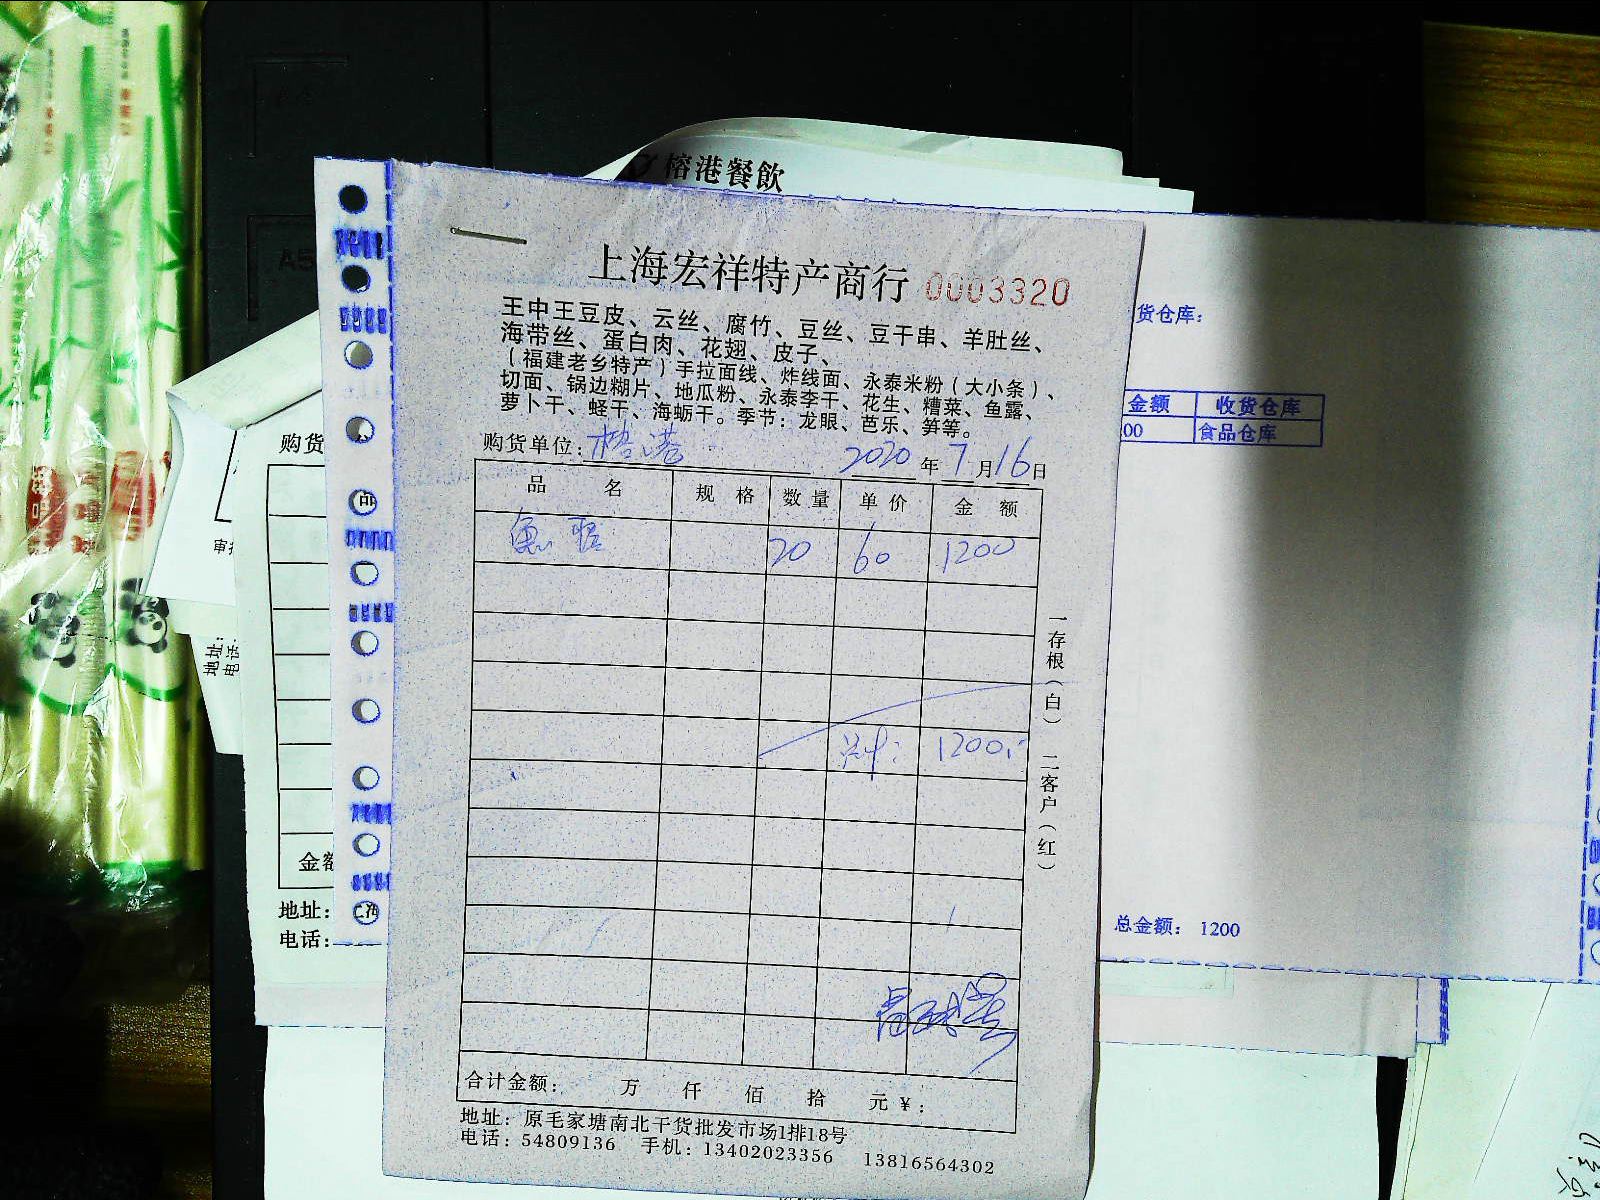 榕港餐飲
上海宏祥特产商行 0003320
王中王豆皮、云丝、腐竹、豆丝、豆干串、羊肚丝、
海带丝、蛋白肉、花翅、皮子、
（福建老乡特产）手拉面线、炸线面、永泰米粉（大小条）、
切面、锅边糊片、地瓜粉、永泰李干、花生、糟菜、鱼露、
萝卜干、蛏干、海蛎干。季节：龙眼、芭乐、笋等。
购货单位：榕港 2020 年 7 月 16 日
品 名 规 格 数 量 单 价 金 额
20 60 1200
共计： 1200
一存根（白） 二客户（红）
合计金额： 万 仟 佰 拾 元 ¥：
地址：原毛家塘南北干货批发市场1排18号
电话：54809136 手机：13402023356 13816564302
货仓库：
金额 收货仓库
00 食品仓库
总金额： 1200
购货
品
审
地址：
电话
金额
地址：上海
电话：
A5